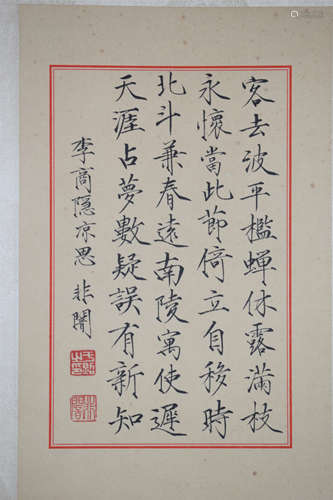 客去波平檻蟬休露滿枝
永懷當此節倚立自移時
北斗兼春遠南陵寓使遲
天涯占夢數疑誤有新知
李商隱凉思 非闇